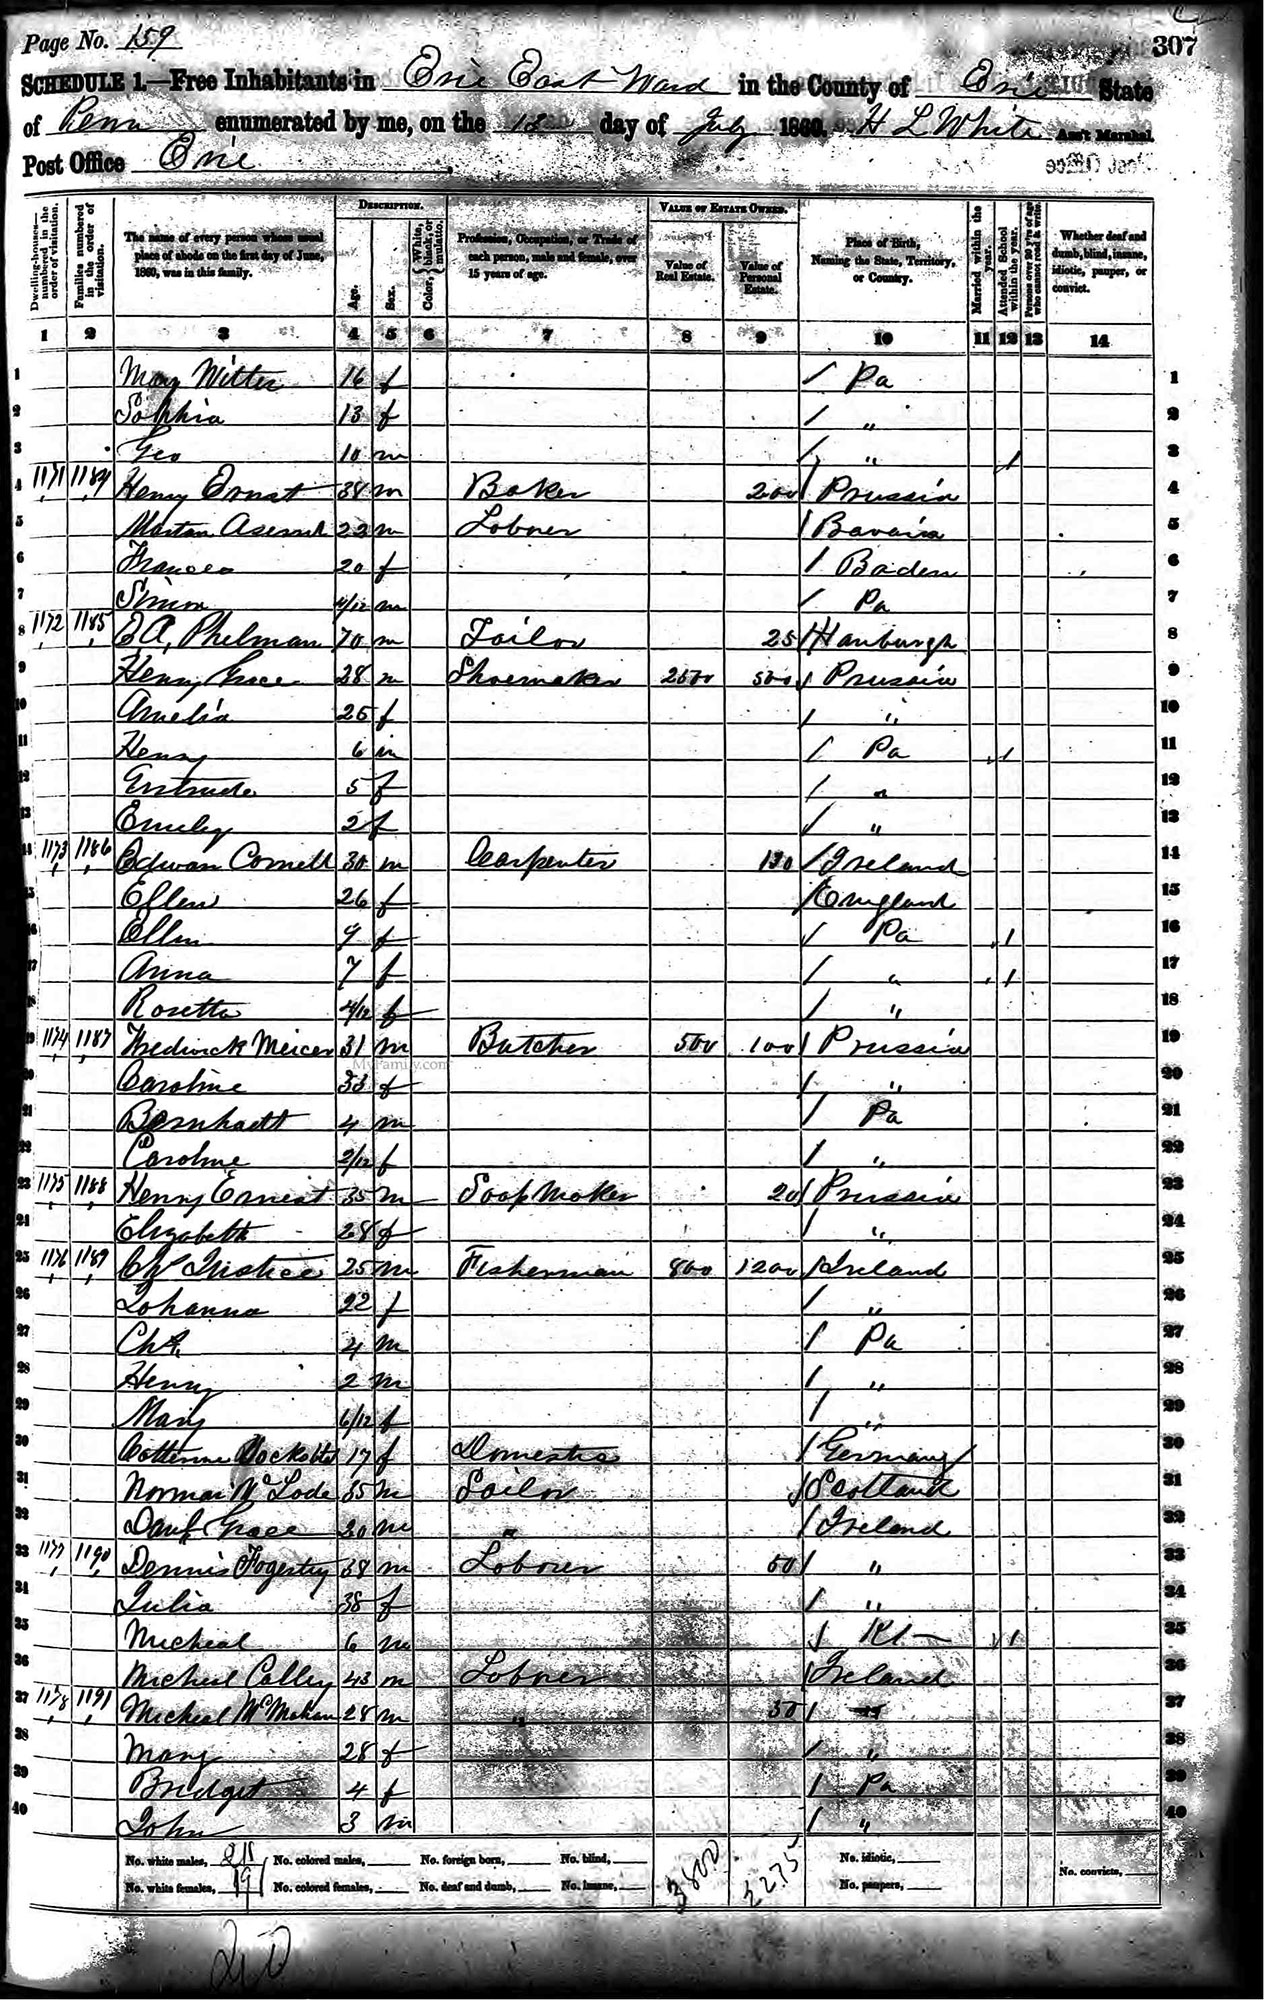 Page No. 159
307
SCHEDULE 1.—Free Inhabitants in Erie East Ward in the County of Erie State
of Penn enumerated by me, on the 13 day of July 1860. H L White Ass't Marshal.
Post Office Erie
Dwelling-houses—numbered in the order of visitation.
Families numbered in the order of visitation.
The name of every person whose usual place of abode on the first day of June, 1860, was in this family.
DESCRIPTION.
Age.
Sex.
Color, White, black, or mulatto.
Profession, Occupation, or Trade of each person, male and female, over 15 years of age.
VALUE OF ESTATE OWNED.
Value of Real Estate.
Value of Personal Estate.
Place of Birth, Naming the State, Territory, or Country.
Married within the year.
Attended School within the year.
Persons over 20 y'rs of age who cannot read & write.
Whether deaf and dumb, blind, insane, idiotic, pauper, or convict.
1 2 3 4 5 6 7 8 9 10 11 12 13 14
1 Mary Witter 16 f / Pa 1
2 Sophia 13 f / " 2
3 Geo 10 m / " / 3
4 1171 1184 Henry Ernst 38 m Baker 200 / Prussia 4
5 22 m Laborer / Bavaria 5
6 Frances 20 f / Baden 6
7 Simon /12 m / Pa 7
8 1172 1185 E A, Phelman 70 m Tailor 25 / Hamburgh 8
9 Henry Grace 28 m Shoemaker 2500 500 / Prussia 9
10 Amelia 25 f / " 10
11 Henry 6 m / Pa / 11
12 Gertrude 5 f / " 12
13 Emiley 2 f / " 13
14 1173 1186 Edwan Cornell 30 m Carpenter / Ireland 14
15 Ellen 26 f / England 15
16 Ellen 9 f / Pa / 16
17 Anna 7 f / " / 17
18 Rosetta 4/12 f / " 18
19 1174 1187 Fredrick Meicer 31 m Butcher 500 100 / Prussia 19
MyFamily.com
20 Caroline 33 f / " 20
21 Bernhadt 4 m / Pa 21
22 Caroline 2/12 f / " 22
23 1175 1188 Henry Ernest 35 m Soap Maker 20 / Prussia 23
24 Elizabeth 28 f / " 24
25 1176 1189 Chs Justice 25 m Fisherman 800 1200 / Ireland 25
26 Johanna 22 f / " 26
27 Chs, 4 m / Pa 27
28 Henry 2 m / " 28
29 Mary 6/12 f / " 29
30 Catterine 17 f Domestic / Germany 30
31 Norman McLode 35 m Sailor / Scotland 31
32 Danl Grace 20 m " / Ireland 32
33 1177 1190 Dennis Fogerty 38 m Laborer 50 / " 33
34 Julia 38 f / " 34
35 Micheal 6 m / / 35
36 Micheal Calley 43 m Laborer / Ireland 36
37 1178 1191 Micheal McMahan 28 m " 50 / " 37
38 Mary 28 f / " 38
39 Bridget 4 f / Pa 39
40 John 3 m / " 40
No. white males, 21 No. colored males, No. foreign born, No. blind, 3800 2275 No. idiotic, No. convicts,
No. white females, 19 No. colored females, No. deaf and dumb, No. insane, No. paupers,